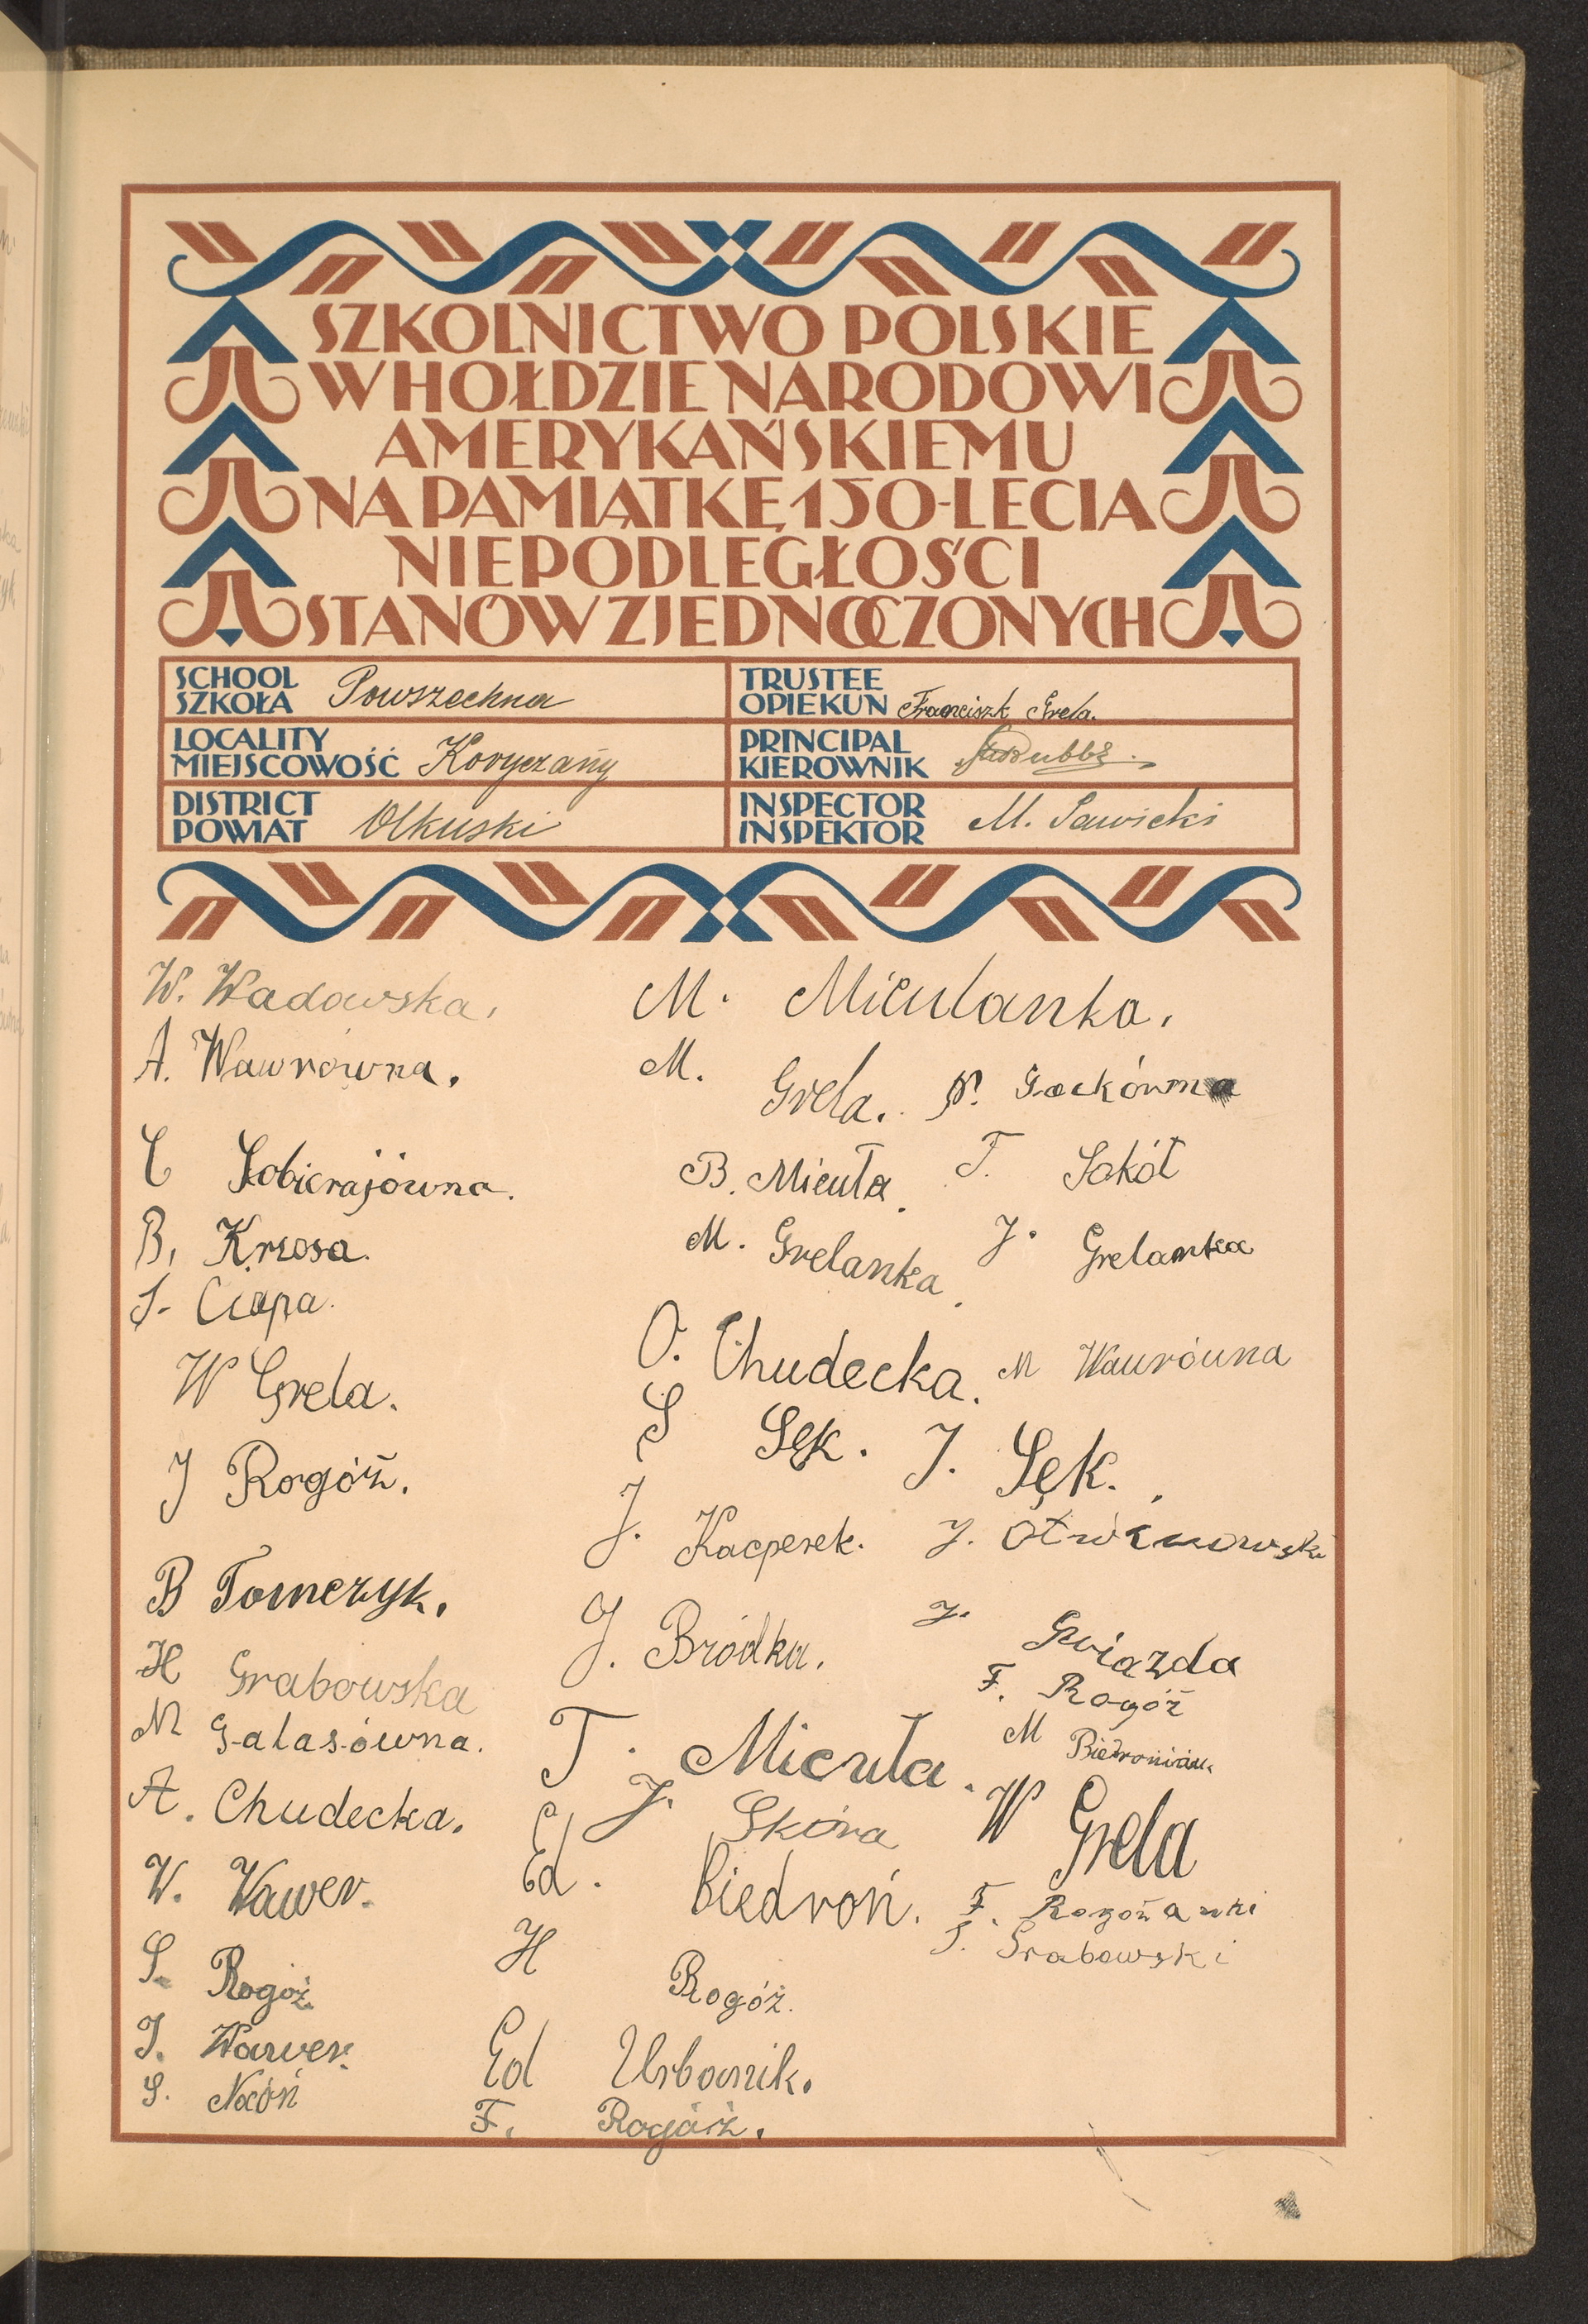 SZKOLNICTWO POLSKIE
W HOŁDZIE NARODOWI
AMERYKAŃSKIEMU
NA PAMIĄTKĘ 150-LECIA
NIEPODLEGŁOŚCI
STANÓW ZJEDNOCZONYCH
SCHOOL
SZKOŁA Powszechna
TRUSTEE
OPIEKUN Franciszk Grela.
LOCALITY
MIEJSCOWOŚĆ Koryczany
PRINCIPAL
KIEROWNIK
DISTRICT
POWIAT Olkuski
INSPECTOR
INSPEKTOR M. Sawicki
W. Wadowska.
A. Wawrówna.
C Sobierajówna.
B. Krzosa.
S. Ciapa.
W Grela.
J Rogóż.
B Tomczyk.
H Grabowska
M Galasówna.
A. Chudecka.
W. Wawer.
S. Rogóż
J. Wawer.
S. Nocoń
M. Miculanka.
M. Grela.
B. Micuła.
M. Grelanka.
O. Chudecka.
S Sęk.
J. Kacperek.
J. Bródka.
T. Micuła.
J. Skóra
Ed. Biedroń.
H Rogóż.
Ed Urbanik.
F. Rogóż.
Gockówna
T. Sokół
J. Grelanka
M Wawrówna
J. Sęk.
J.
J. Gwiazda
F. Rogóż
M
W Grela
F.
S. Grabowski